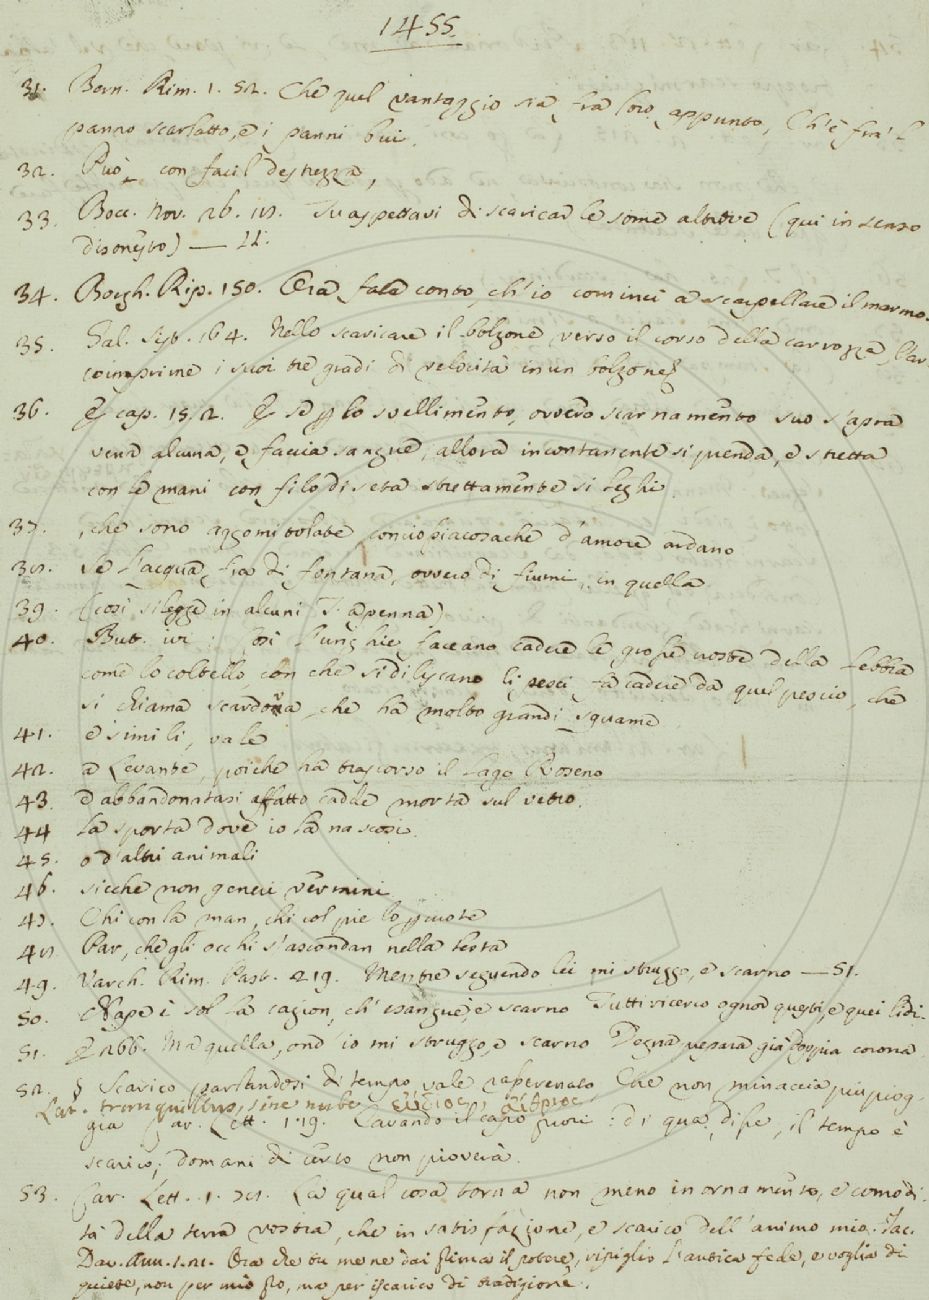 1455.
31. Bern. Rim. 1. 52. Che quel vantaggio sia fra loro appunto, Ch'è fra 'l
panno scarlatto, e i panni bui.
32. Può con facil destrezza,
33. Bocc. Nov. 26. 18. Tu aspettavi di scaricar le some altrove (qui in senso
disonesto) — 
34. Borgh. Rip. 150. Ora fate conto, ch'io cominci a scarpellare il marmo.
35. Gal. Sist. 164. Nello scaricare il bolzone verso il corso della carrozza, l'ar-
co imprime i suoi tre gradi di velocità in un bolzone
36. E cap. 15. 2. E se lo svellimento, ovvero scarnamento suo s'apra
vena alcuna, e faccia sangue, allora incontanente si prenda, e stretta
con le mani con filo di seta strettamente si leghi
37. , che sono aggomitolate, conciossiacosachè d'amore ardano
38. Se l'acqua fia di fontana, ovvero di fiumi, in quella
39. (così si legge in alcuni T. a penna)
40. But. ivi: Così l'unghie faceano cadere le grosse croste della lebbra
come lo coltello, con che si diliscano li pesci, fa cadere da quel pescio, che
si chiama scardova, che ha molto grandi squame
41. e simili, vale
42. a Levante, poichè ha trascorso il lago Roseno
43. e abbandonatasi affatto cadde morta sul vetro.
44 la sporta dove io la nascosi.
45. o d'altri animali
46. sicche non generi vermini
47. Chi con la man, chi col piè lo percuote
48 Par, che gli occhi s'ascondan nella testa
49. Varch. Rim. Past. 219. Mentre seguendo lei mi struggo, e scarno — 51.
50. E sol la cagion, ch'esangue, e scarno Tutti ricerco ognor questi, e quei lidi.
51. E 266. Ma quella, ond'io mi struggo, e scarno Degna sperar già doppia corona
52. § Scarico parlandosi di tempo, vale rasserenato Che non minaccia più piog-
Lat. tranquillus, sine nube εὔδιος, αἴθριος
gia Car. Lett. 1. 19. Cavando il capo fuori: di qua, disse, il tempo è
scarico; domani di certo non pioverà.
53. Car. Lett. 1. 78. La qual cosa torna non meno in ornamento, e comodi-
tà della terra vostra, che in satisfazione, e scarico dell'animo mio. Tac.
Dav. Ann. 1. 21. Ora che tu me ne dai prima il potere, ripiglio l'antica fede, e voglia di
quiete, non per mio pro, ma per iscarico di tradigione.